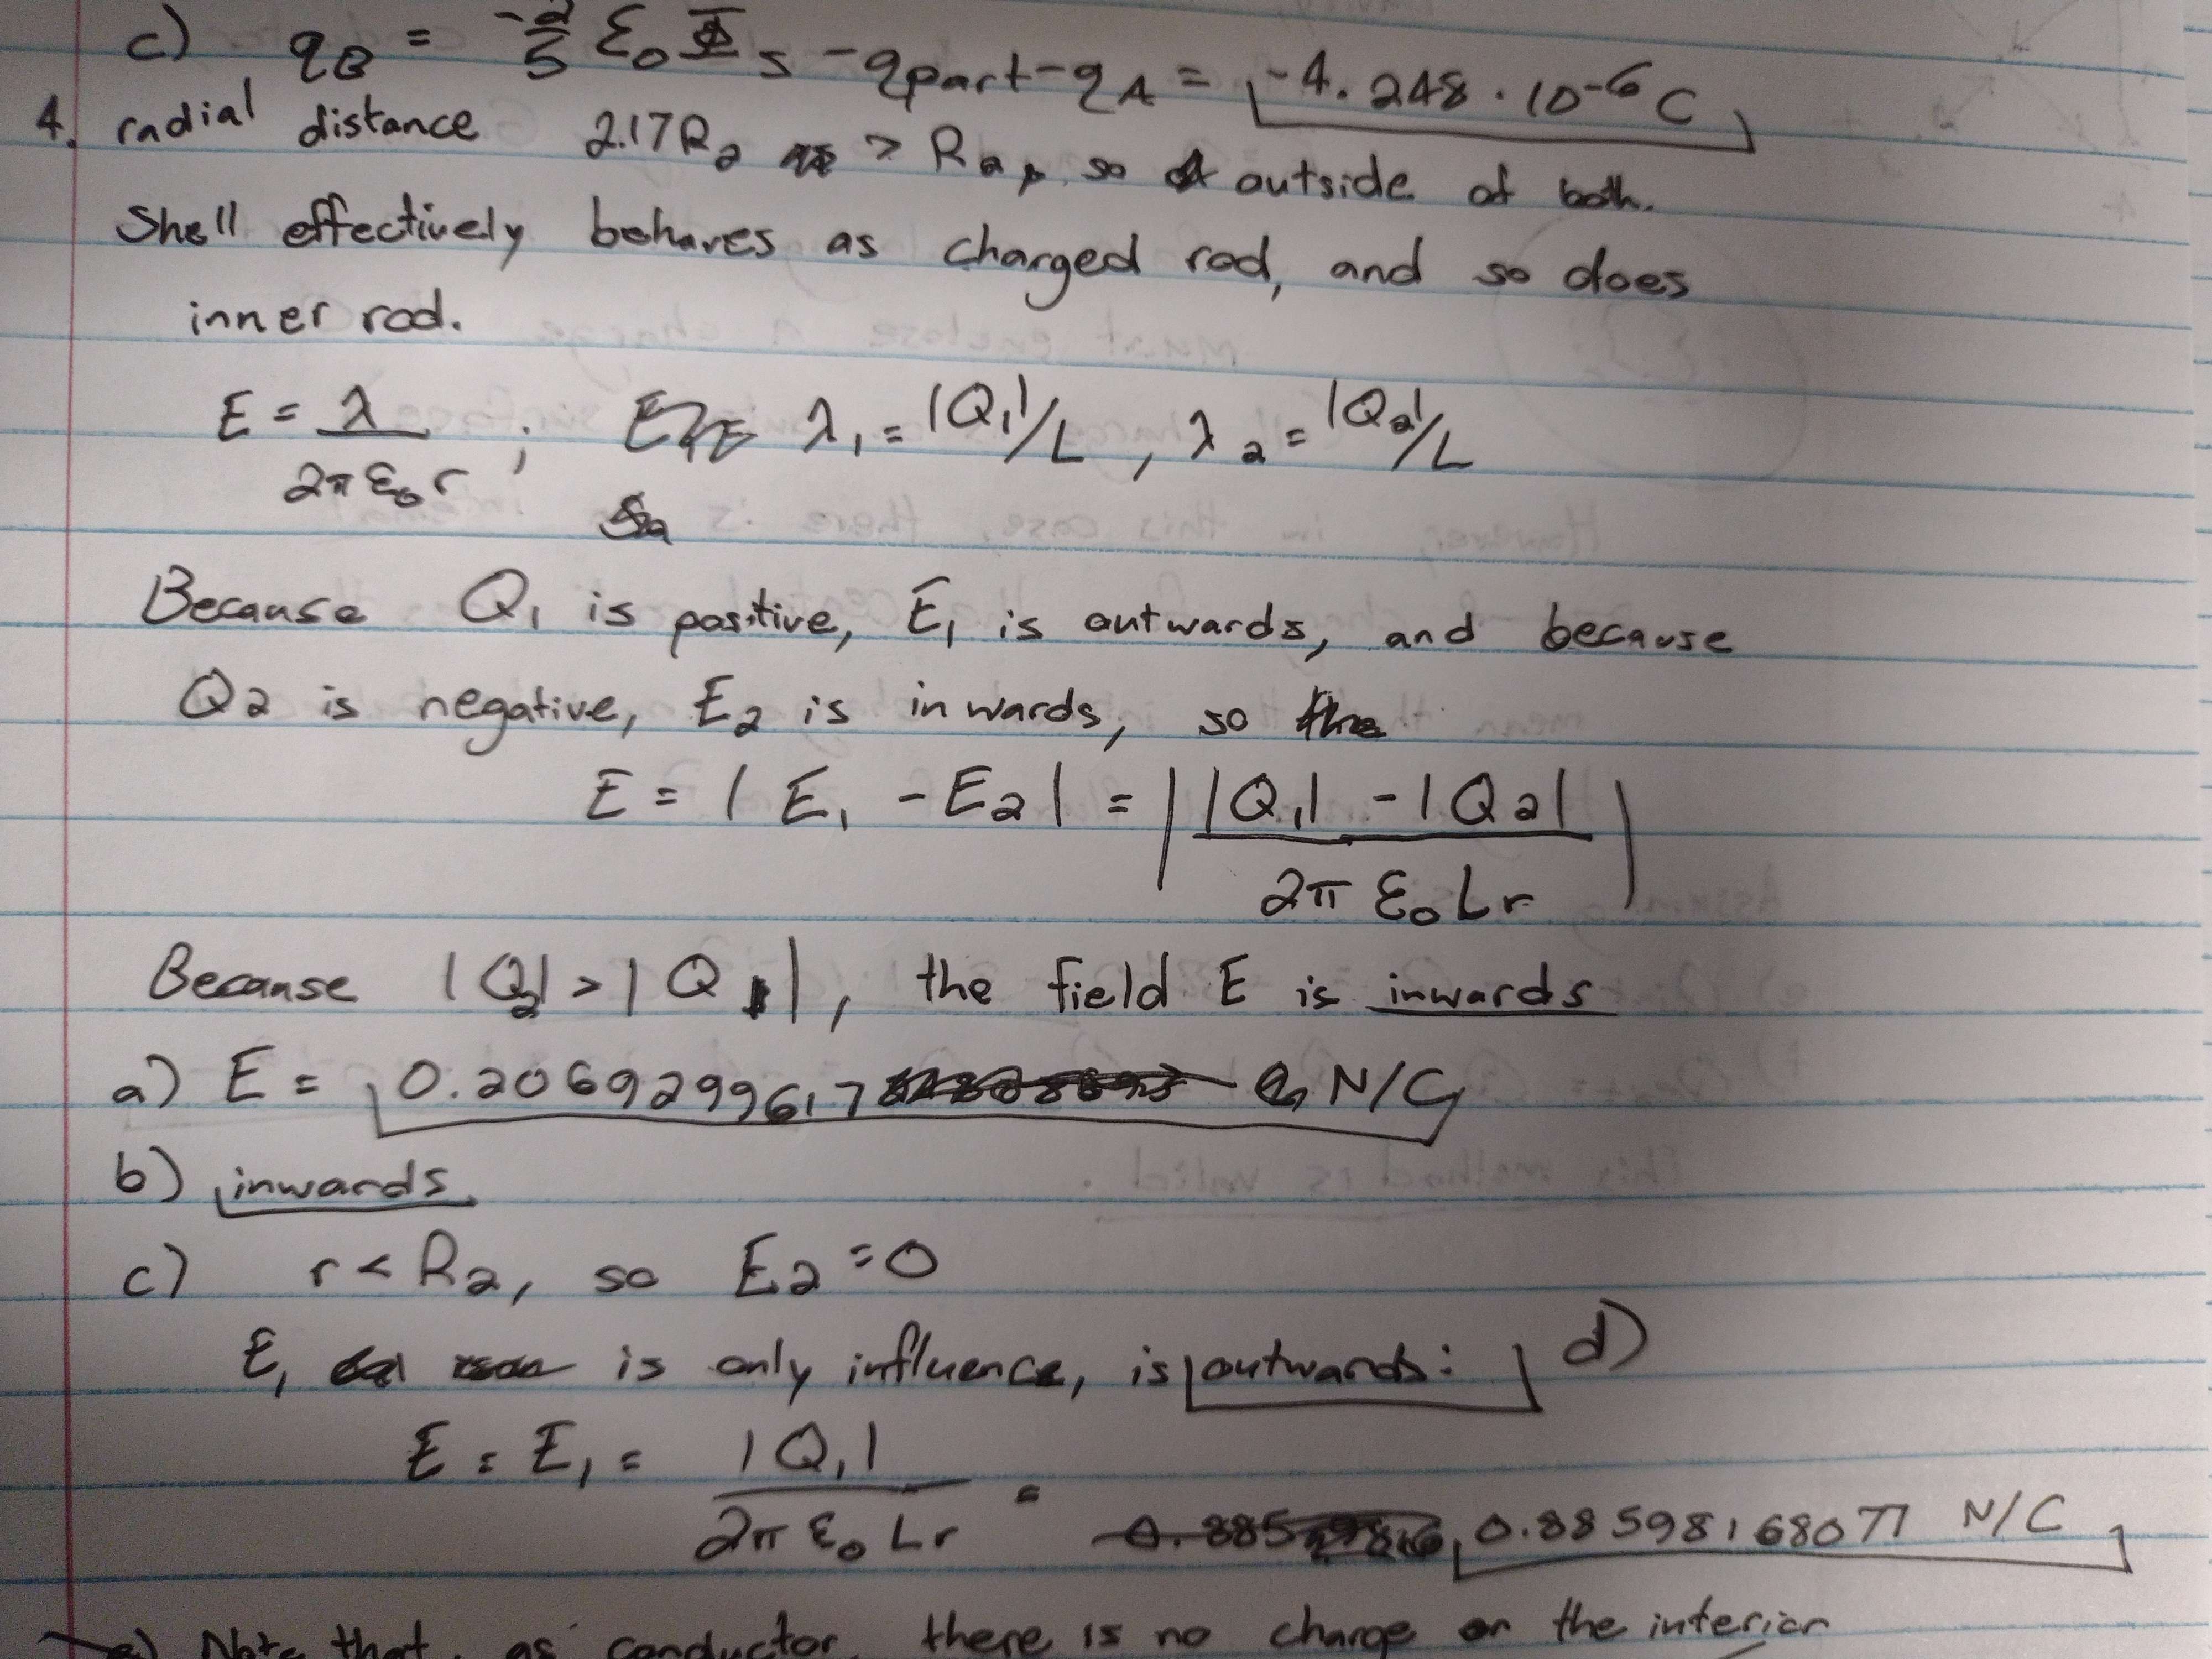 c) qB = -2/5 ε₀ Φ s - qpart - qA = -4.248 · 10⁻⁶ C
4. radial distance 2.17R₂ > R₂, so outside of both.
Shell effectively behaves as charged rod, and so does
inner rod.
E = λ / 2πε₀r ; λ₁ = |Q₁|/L , λ₂ = |Q₂|/L
Because Q₁ is positive, E₁ is outwards, and because
Q₂ is negative, E₂ is inwards, so
E = | E₁ - E₂ | = | |Q₁| - |Q₂| / 2π ε₀ L r |
Because |Q₂| > |Q₁|, the field E is inwards
a) E = 0.2069299617 N/C
b) inwards
c) r < R₂, so E₂ = 0
E₁ is only influence, is outwards: d)
E = E₁ = |Q₁| / 2π ε₀ L r = 0.88598168077 N/C
e) Note that, as conductor, there is no charge on the interior